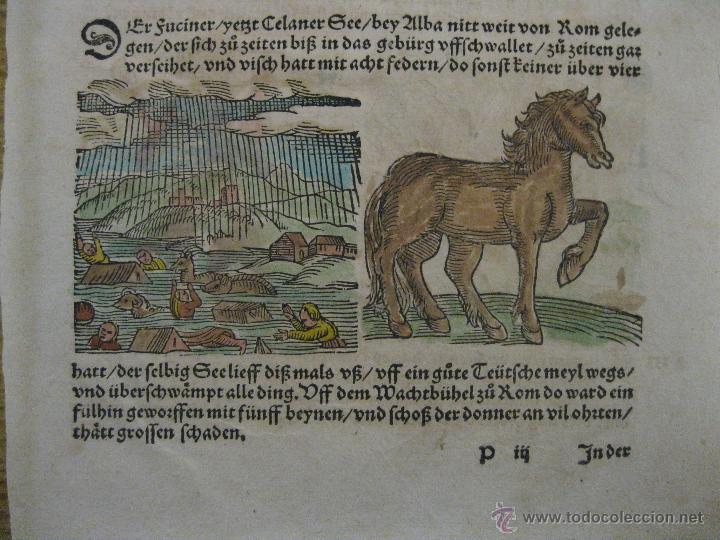 DEr Fuciner / yetzt Celaner See / bey Alba nitt weit von Rom gele-
gen / der sich zů zeiten biß in das gebürg vffschwallet / zů zeiten gar
verseihet / vnd visch hatt mit acht federn / do sonst keiner über vier
hatt / der selbig See lieff diß mals vß / vff ein gůte Teütsche meyl wegs /
vnd überschwämpt alle ding. Vff dem Wachtbühel zů Rom do ward ein
fülhin geworffen mit fünff beynen / vnd schoß der donner an vil ohrten /
thätt grossen schaden.
P iij In der
© www.todocoleccion.net